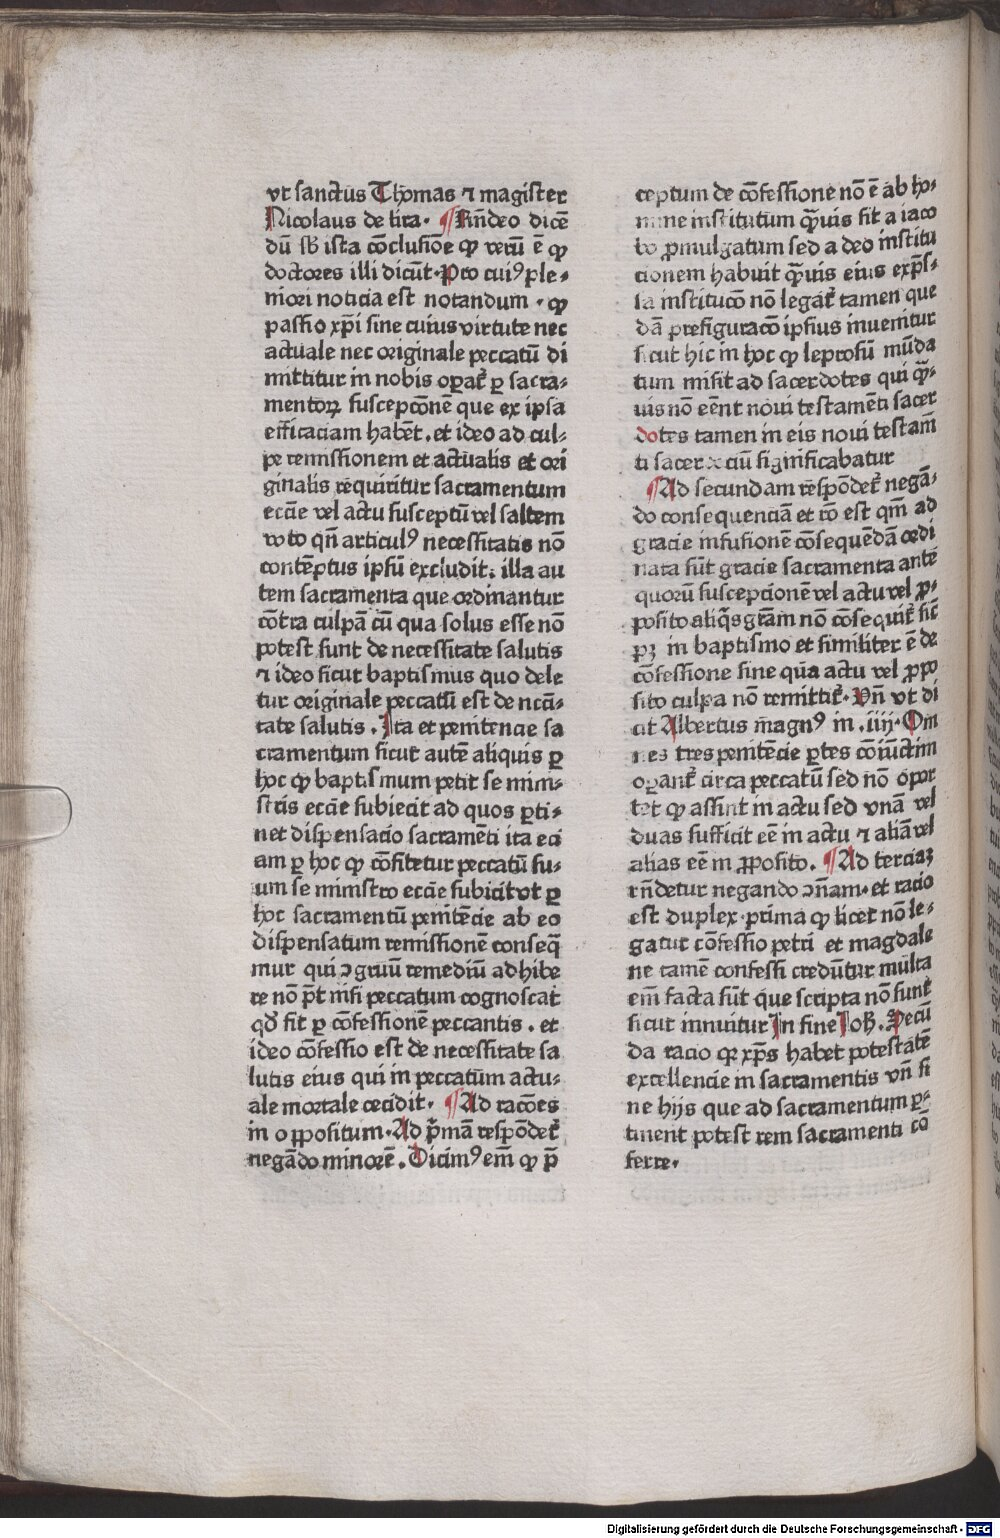 vt sanctus Thomas ⁊ magister
Nicolaus de lira. ¶Rñdeo dicē
dū sb ista cōclusiōe ꝙ verū ē ꝙ
doctores illi dicūt. Pro cuiꝰ ple⸗
niori noticia est notandum . ꝙ
passio xp̄i sine cuius virtute nec
actuale nec originale peccatū di
mittitur in nobis oꝑat᷑ ꝑ sacra⸗
mentoꝝ suscepcōnē que ex ipsa
efficaciam habēt . et ideo ad cul⸗
pe remissionem et actualis et ori
ginalis requiritur sacramentum
eccīe vel actu susceptū vel saltem
voto qn̄ articulꝰ necessitatis nō
contēptus ipsū excludit: illa au
tem sacramenta que ordinantur
cōtra culpā cū qua solus esse nō
potest sunt de necessitate salutis
⁊ ideo sicut baptismus quo dele
tur originale peccatū est de nccī⸗
tate salutis . Ita et penitencie sa
cramentum sicut autē aliquis ꝑ
hoc ꝙ baptismum petit se mini⸗
stris eccīe subiecit ad quos ꝑti⸗
net dispensacio sacramēti ita eci
am ꝑ hoc ꝙ cōfitetur peccatū su⸗
um se ministro eccīe subicit vt ꝑ
hoc sacramentū penitēcie ab eo
dispensatum remissionē conseq̄
mur qui ↄgruū remediū adhibe
re nō p̄t nisi peccatum cognoscat
qd̓ fit ꝑ cōfessionē peccantis . et
ideo cōfessio est de necessitate sa
lutis eius qui in peccatūm actu⸗
ale mortale cecidit. ¶Ad racōes
in oppositum. Ad p̄mā respōdet᷑
negādo minorē . Dicimꝰ em̄ ꝙ p̄
ceptum de cōfessione nō ē ab ho⸗
mine institutum q̄uis sit a iaco
bo ꝓmulgatum sed a deo institu
cionem habuit q̄uis eius exp̄s⸗
sa institucō nō legat᷑ tamen que
dā prefiguracō ipsius inuenitur
sicut hic in hoc ꝙ leprosū mūda
tum misit ad sacerdotes qui q̄⸗
uis nō eēnt noui testamēti sacer
dotes tamen in eis noui testam̄
ti sacerdociū significabatur
¶Ad secundam respōdet᷑ negā⸗
do consequenciā et rō est qm̄ ad
gracie infusionē cōsequēdā ordi
nata sūt gracie sacramenta ante
quorū suscepcionē vel actu vel ꝓ⸗
posito aliq̇s grām nō cōsequit᷑ sic̄
pꝫ in baptismo et similiter ē de
cōfessione sine qūa actu vel ꝓpo
sito culpa nō remittit᷑. Vn̄ vt di
cit Albertus magnꝰ in .iiij. Om
nes tres penitēcie ꝑtes cōiūctim
oꝑant᷑ circa peccatū sed nō opor
tet ꝙ assint in actu sed vnā vel
duas sufficit eē in actu ⁊ aliā vel
alias eē in ꝓposito. ¶Ad terciaꝫ
rn̄detur negando ↄn̄am. et racio
est duplex. prima ꝙ licet nō le⸗
gatur cōfessio petri et magdale
ne tamē confessi credūtur multa
em̄ facta sūt que scripta nō sunt
sicut innuitur In fine Ioh̄. Secū
da racio qꝛ xp̄s habet potestatē
excellencie in sacramentis vn̄ si
ne hijs que ad sacramentum ꝑ⸗
tinent potest rem sacramenti cō
ferre.
Digitalisierung gefördert durch die Deutsche Forschungsgemeinschaft - DFG